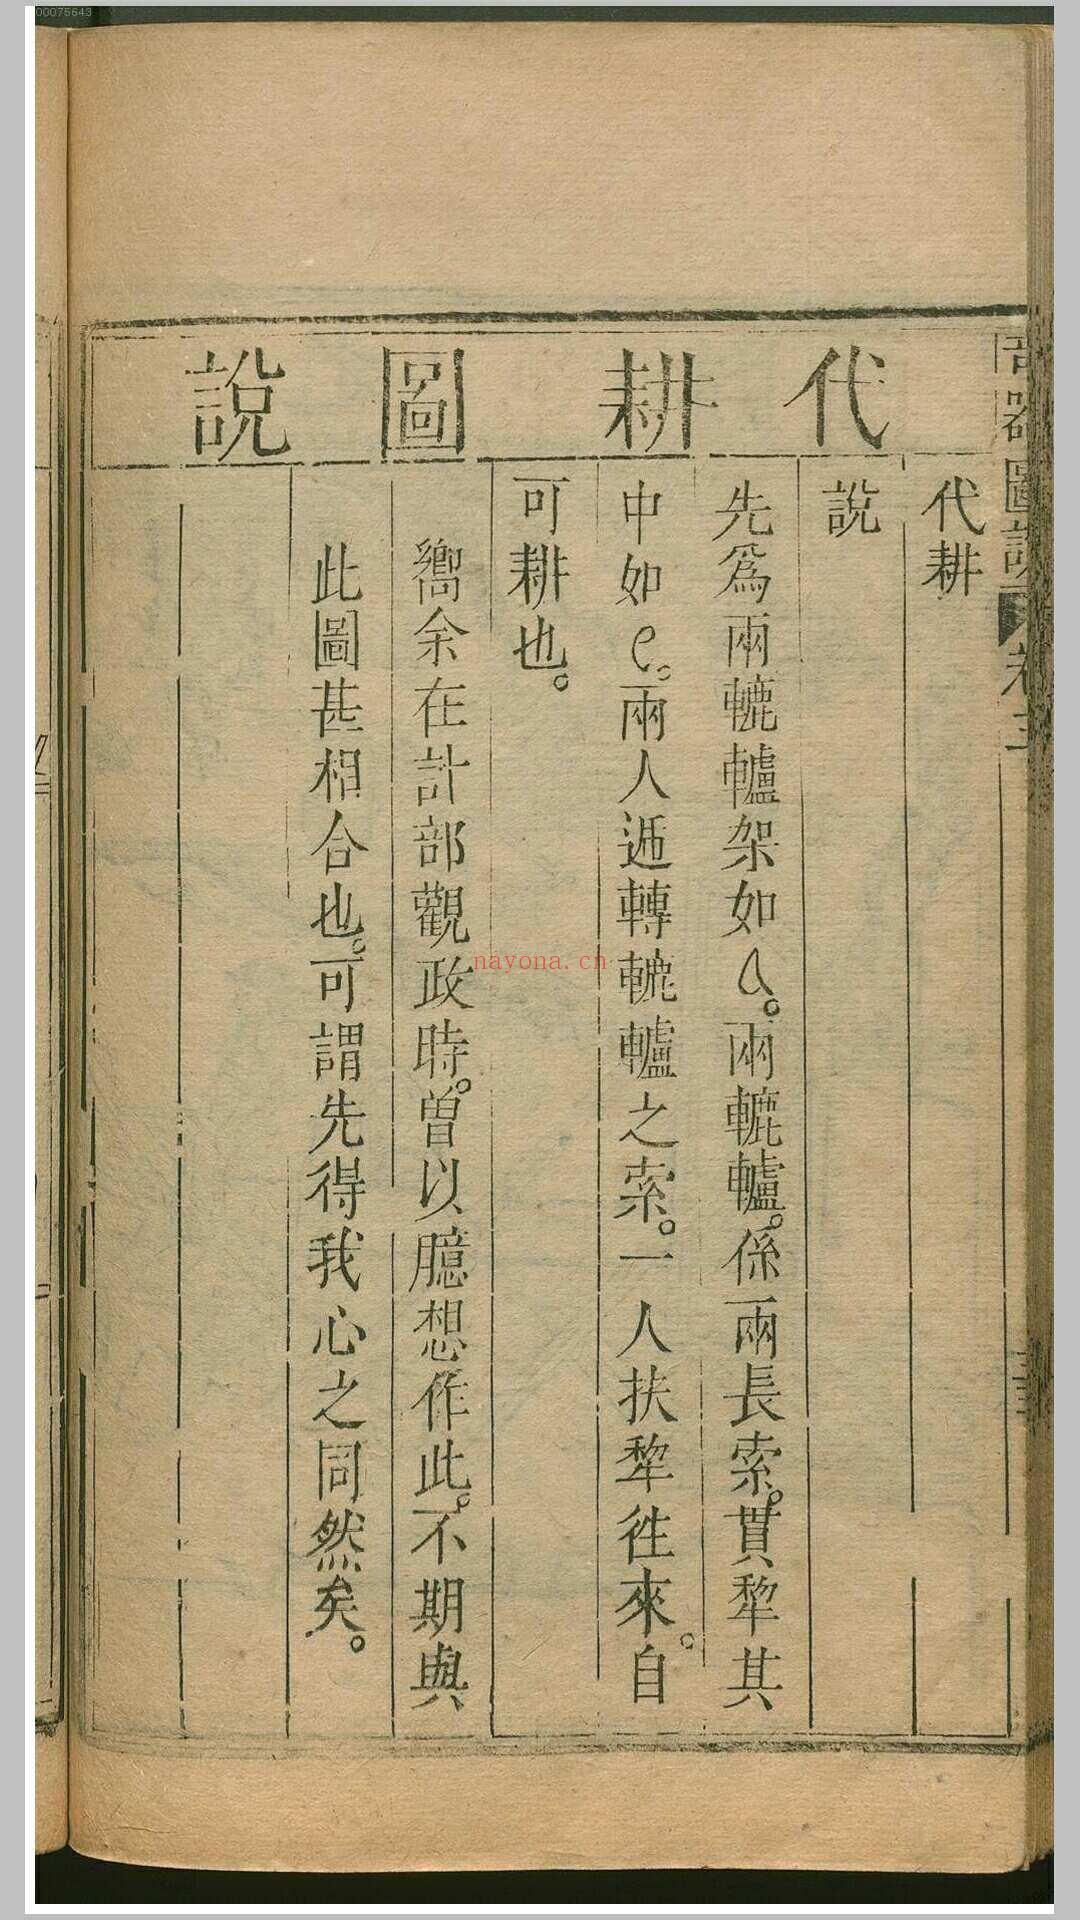 代耕圖說
代耕
說
先爲兩轆轤架如a。兩轆轤。係兩長索。貫犂其
中如e。兩人遞轉轆轤之索。一人扶犂徃來。自
可耕也。
嚮余在計部觀政時。曽以臆想作此。不期與
此圖甚相合也。可謂先得我心之同然矣。
器圖說
卷三
nayona.cn
00075643